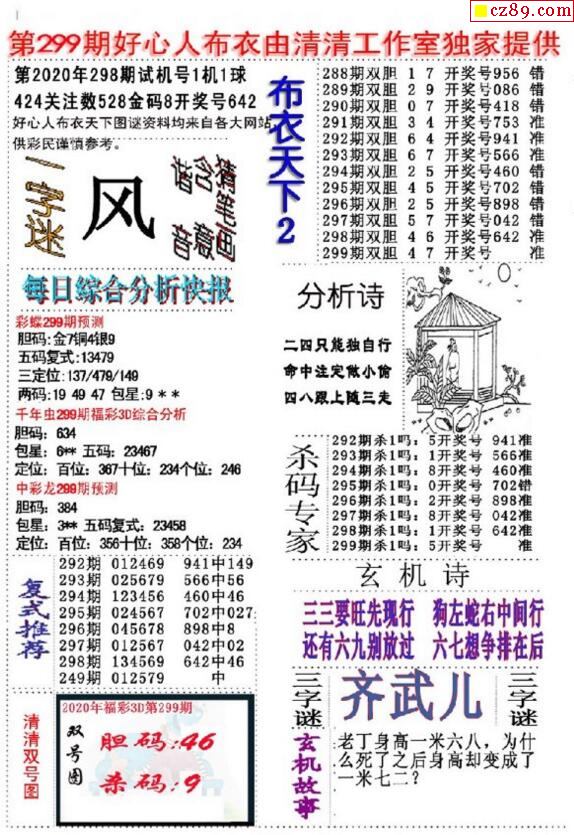 cz89.com
第299期好心人布衣由清清工作室独家提供
第2020年298期试机号1机1球
424关注数528金码8开奖号642
好心人布衣天下图谜资料均来自各大网站
供彩民谨慎参考。
一字迷
风
谐音
含意
猜笔画
每日综合分析快报
彩蝶299期预测
胆码:金7铜4银9
五码复式:13479
三定位:137/479/149
两码:19 49 47 包星:9 * *
千年虫299期福彩3D综合分析
胆码: 634
包星: 6** 五码: 23467
定位: 百位: 367十位: 234个位: 246
中彩龙299期预测
胆码: 384
包星: 3** 五码复式: 23458
定位: 百位: 356十位: 358个位: 234
复式推荐
292期 012469 941中149
293期 025679 566中56
294期 123456 460中46
295期 024567 702中027
296期 045678 898中8
297期 012567 042中02
298期 134569 642中46
249期 012579 中
清清双号图
2020年福彩3D第299期
双号图
胆码:46
杀码:9
布衣天下2
288期双胆 1 7 开奖号956 错
289期双胆 2 9 开奖号086 错
290期双胆 0 7 开奖号418 错
291期双胆 3 4 开奖号753 准
292期双胆 6 4 开奖号941 准
293期双胆 6 7 开奖号566 准
294期双胆 2 5 开奖号460 错
295期双胆 4 5 开奖号702 错
296期双胆 2 5 开奖号898 错
297期双胆 5 7 开奖号042 错
298期双胆 4 6 开奖号642 准
299期双胆 4 7 开奖号 准
分析诗
二四只能独自行
命中注定做小偷
四八跟上随三走
杀码专家
292期杀1吗: 5开奖号 941准
293期杀1吗: 1开奖号 566准
294期杀1吗: 8开奖号 460准
295期杀1吗: 0开奖号 702错
296期杀1吗: 2开奖号 898准
297期杀1吗: 8开奖号 042准
298期杀1吗: 1开奖号 642准
299期杀1吗: 5开奖号 准
玄机诗
三三要旺先现行 狗左蛇右中间行
还有六九别放过 六七想争排在后
三字谜
齐武儿
三字谜
玄机故事
老丁身高一米六八，为什
么死了之后身高却变成了
一米七二？